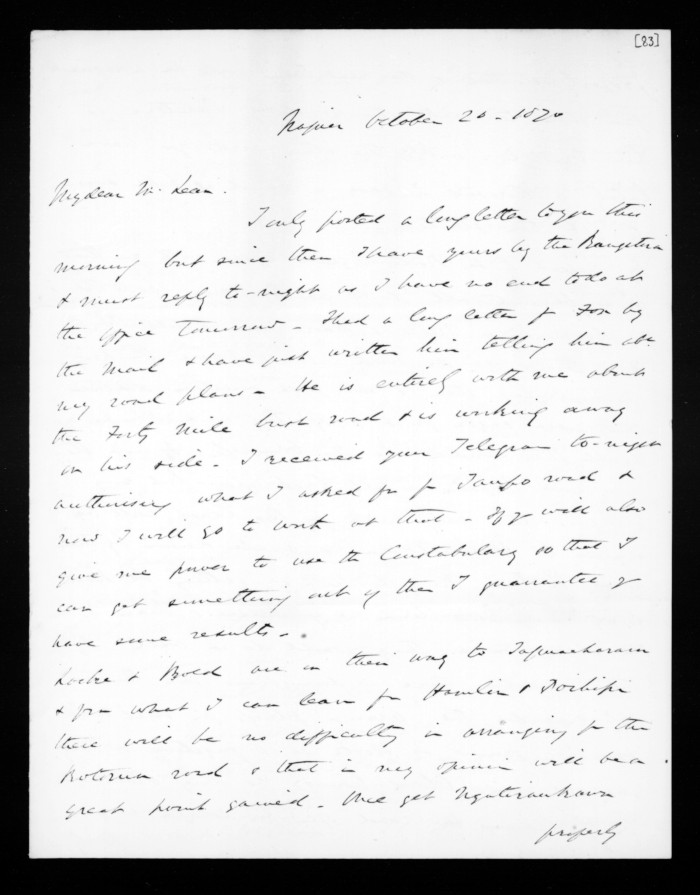 [83]
Napier October 20 - 1870
My dear McLean.
I only posted a long letter to you this
morning but since then I have yours by the Rangatira
& must reply to-night as I have no end to do at
the office tomorrow - I had a long letter fr Fox by
the Mail & have just written him telling him abt
my road plans - He is entirely with me about
the Forty Mile bush road & is working away
on his side. I received your Telegram to-night
authorising what I asked for fr Taupo road &
now I will go to work at that - If y will also
give me power to use the Constabulary so that I
can get something out of them I guarantee y
have some results -
Locke & Bold are on their way to Tapuaeharuru
& from what I can learn fr Hamlin &
there will be no difficulty in arranging for the
Rotorua road & that in my opinion will be a
great point gained - Once get Ngatiraukawa
properly